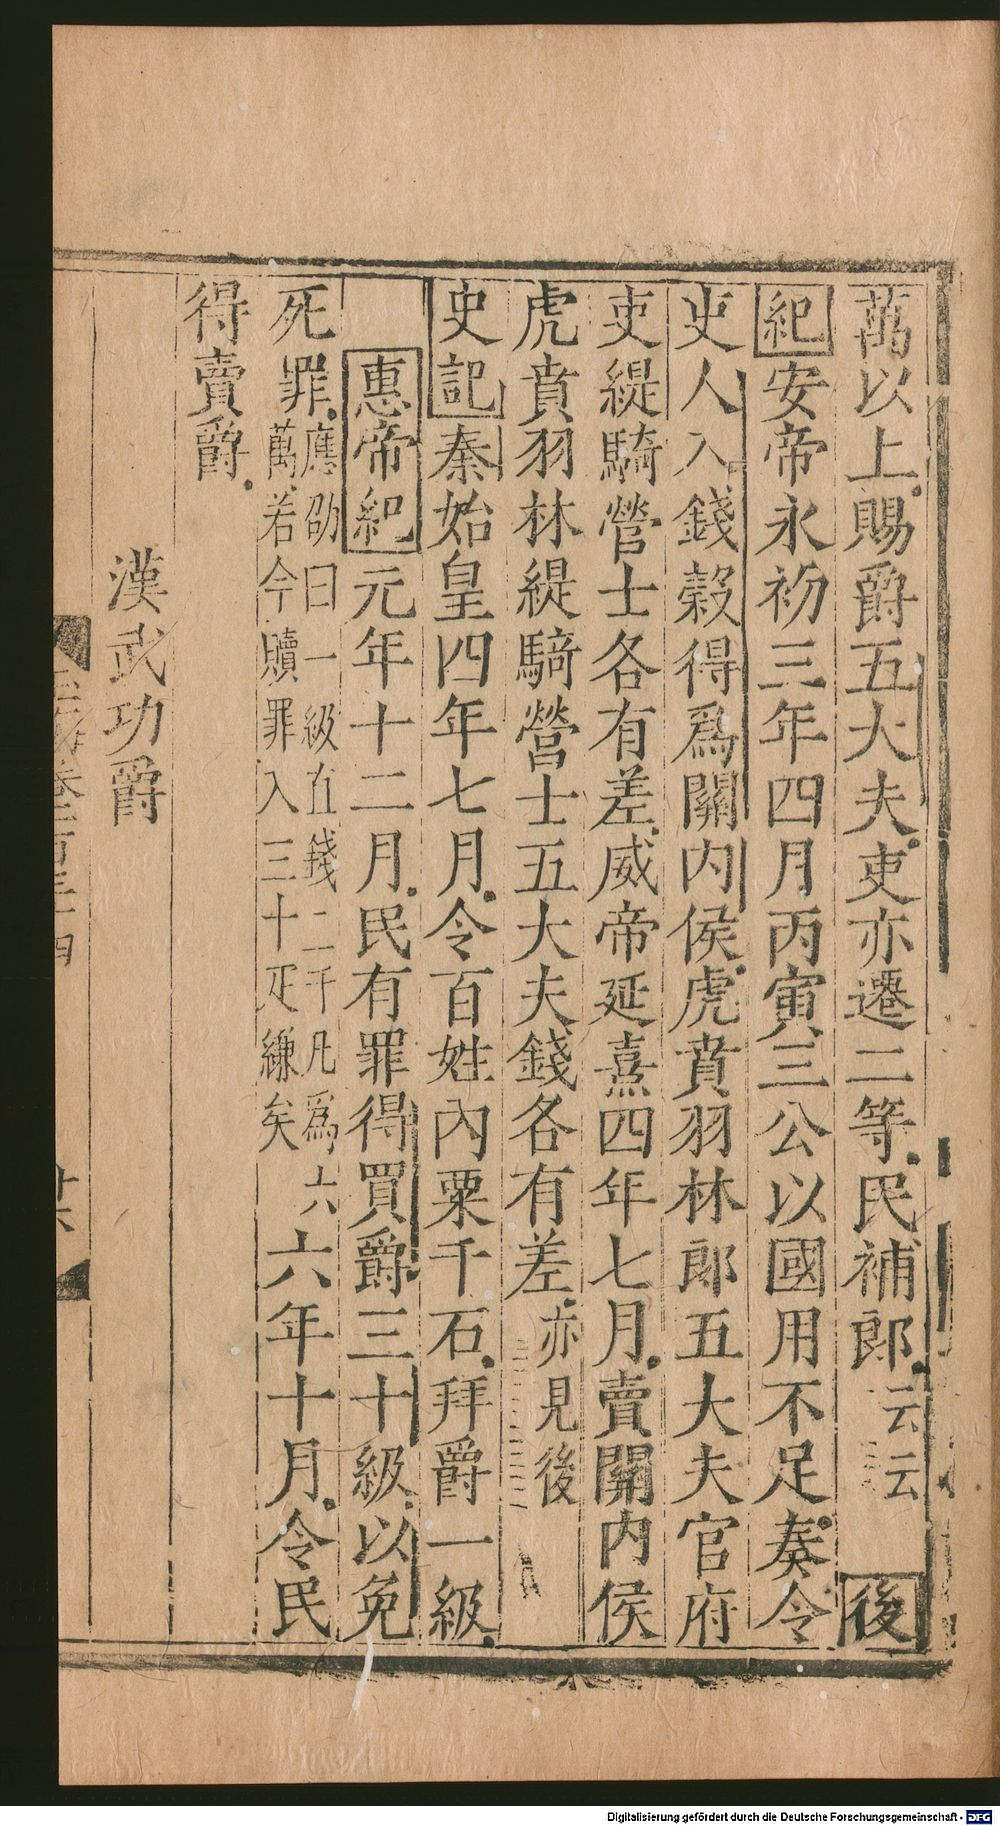 萬以上賜爵五大夫吏亦遷二等民補郎云云後
紀安帝永初三年四月丙寅三公以國用不足奏令
吏人入錢穀得爲關內侯虎賁羽林郎五大夫官府
吏緹騎營士各有差威帝延熹四年七月賣關內侯
虎賁羽林緹騎營士五大夫錢各有差亦見後
史記秦始皇四年七月令百姓內粟千石拜爵一級
惠帝紀元年十二月民有罪得買爵三十級以免
死罪應劭曰一級直錢二千凡爲六萬若今贖罪入三十疋縑矣六年十月令民
得賣爵
漢武功爵
卷二百三十四
廿六
Digitalisierung gefördert durch die Deutsche Forschungsgemeinschaft - DFG